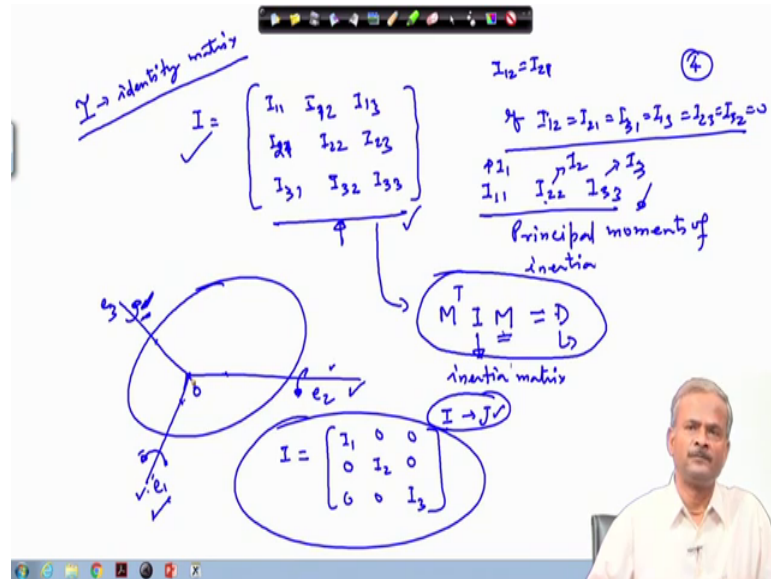 I → identity matrix
I = [ I11 I12 I13
I21 I22 I23
I31 I32 I33 ]
I12 = I21
4
If I12 = I21 = I31 = I13 = I23 = I32 = 0
I1 I2 I3
I11 I22 I33
Principal moments of
inertia
M^T I M = D
inertia matrix
I → J
e3
O
e2
e1
I = [ I1 0 0
0 I2 0
0 0 I3 ]